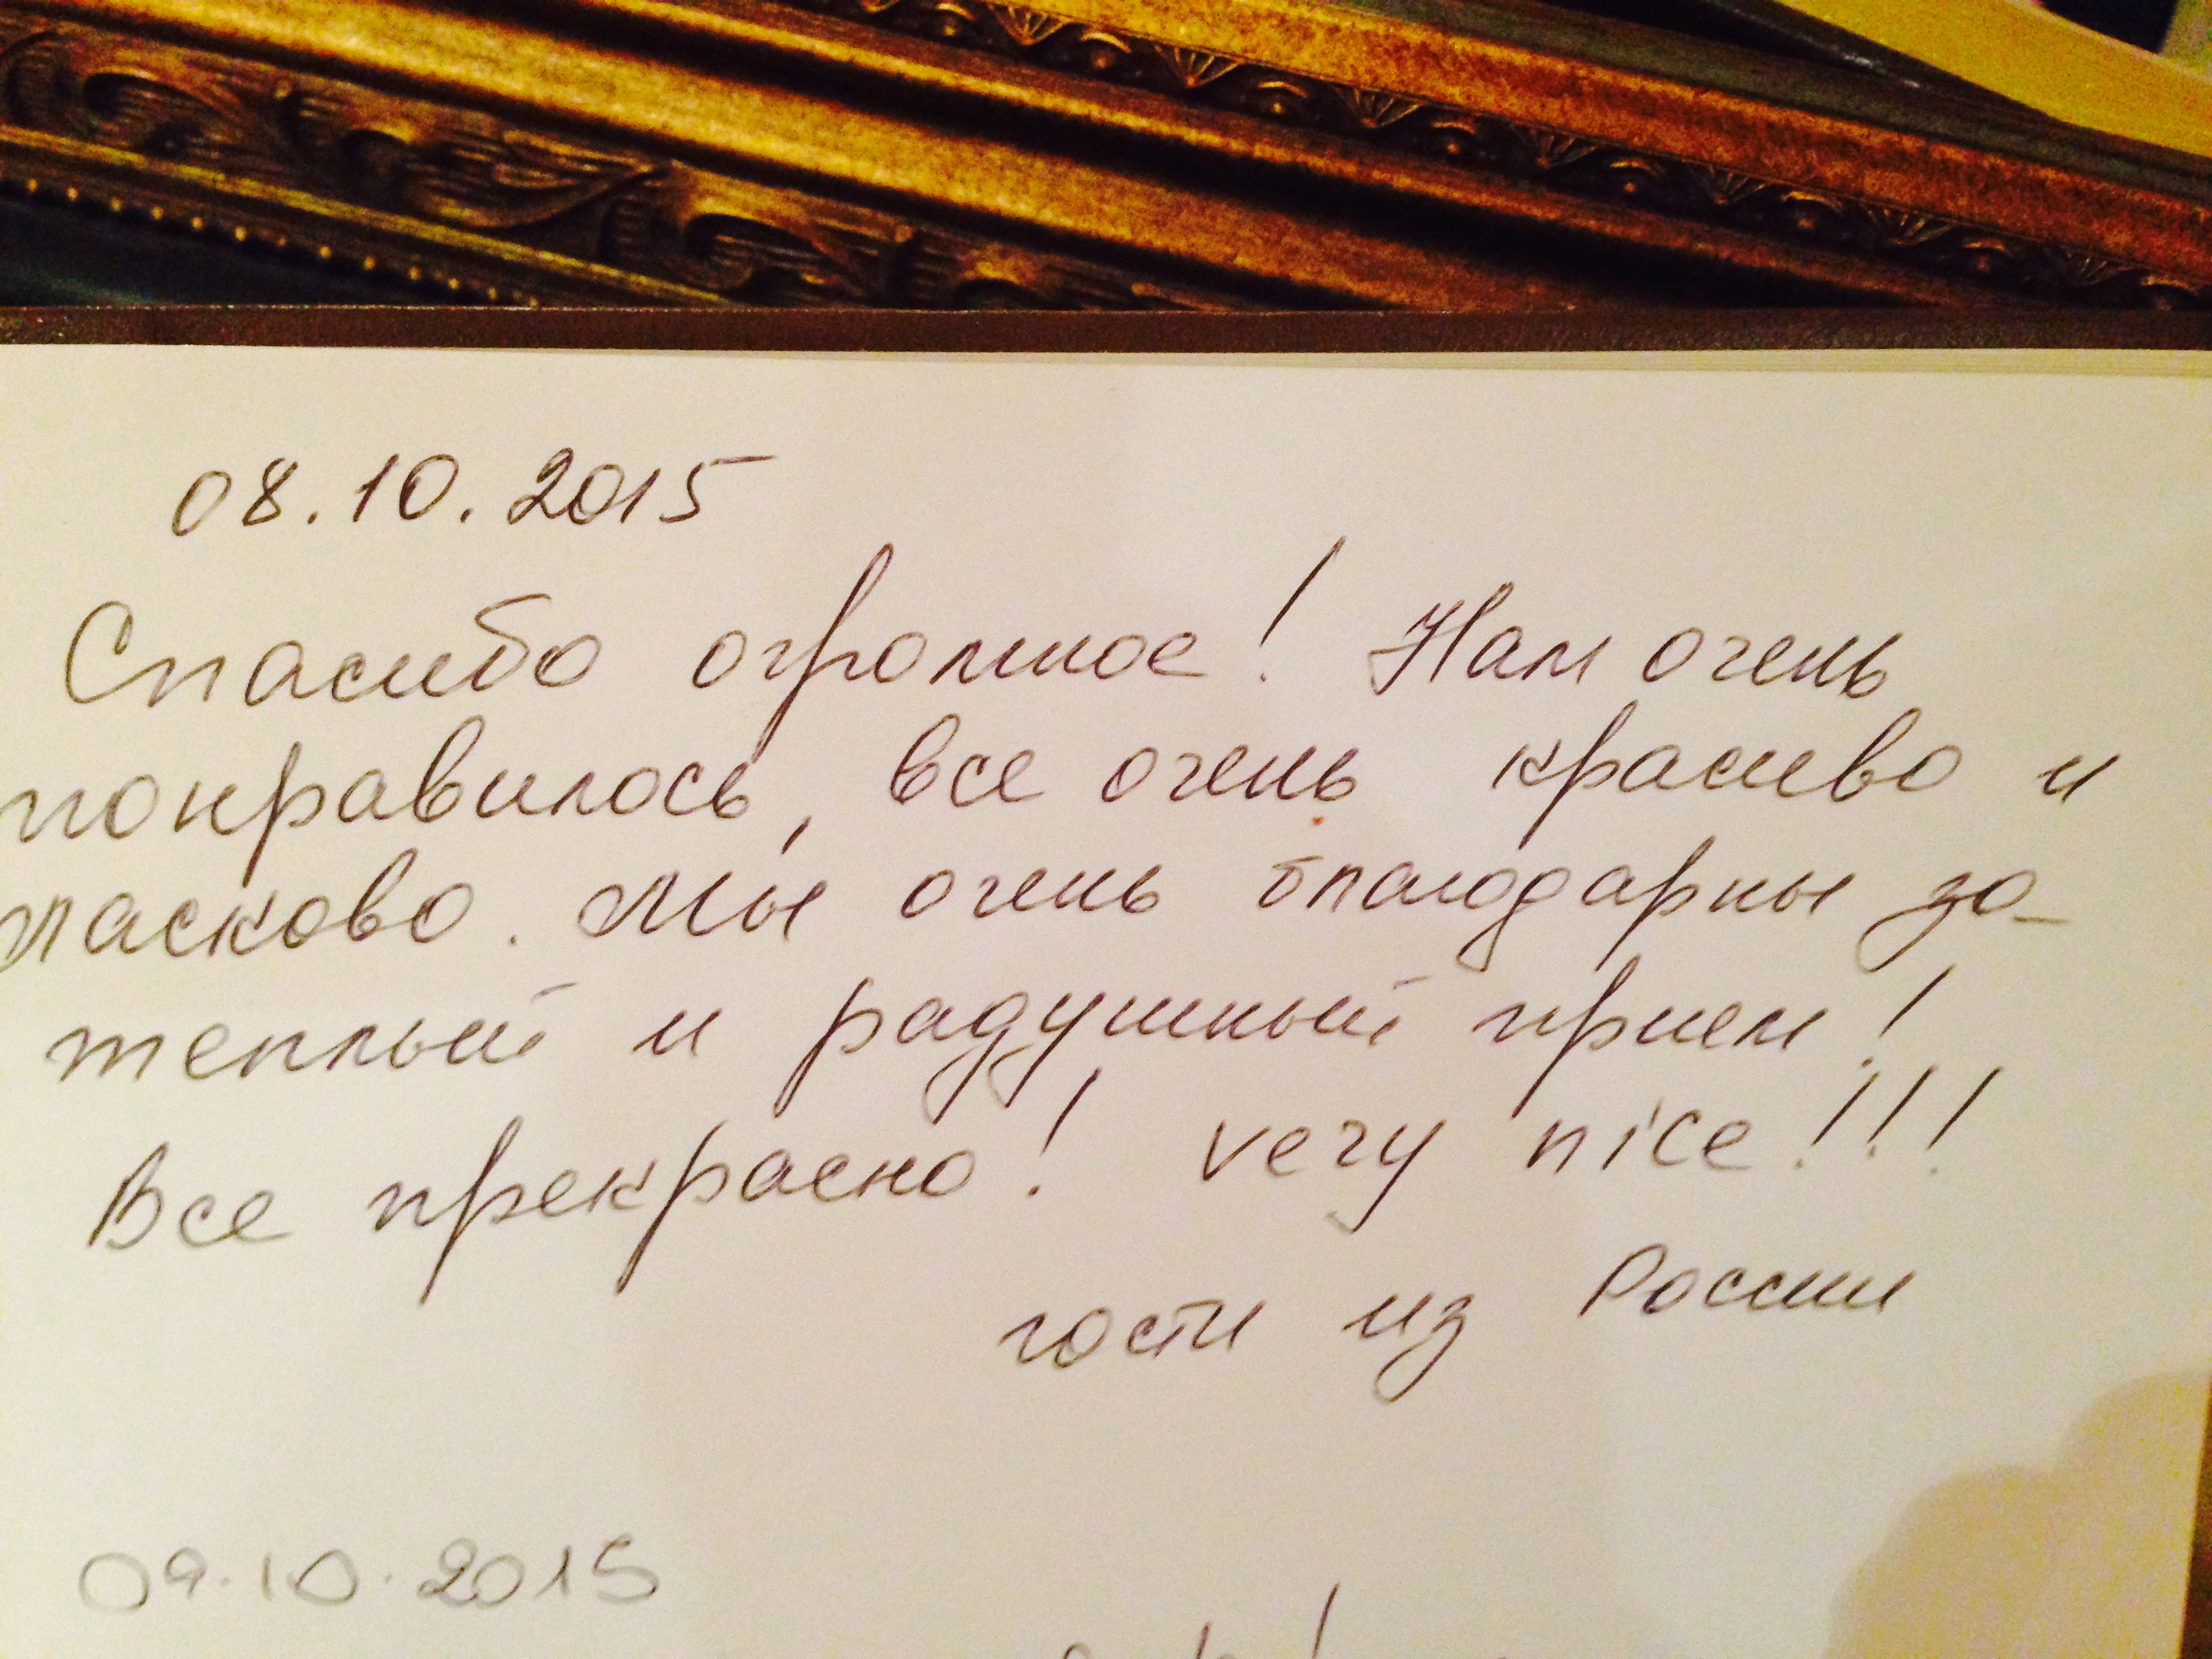 08.10.2015
Спасибо огромное! Нам очень
понравилось, все очень красиво и
ласково. Мы очень благодарны за
теплый и радушный прием!
Все прекрасно! very nice!!!
гости из России
09.10.2015